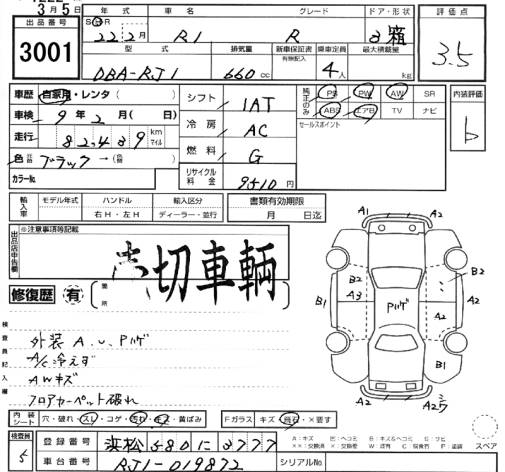 3月5日
出品番号
3001
年式 車名 グレード ドア・形状
S H R
22年2月 R1 R 3 箱
型式 排気量 新車保証書 有無記入 乗車定員 最大積載量
DBA-RJ1 660 cc 4人 kg
評価点
3.5
車歴 自家用・レンタ( )
車検 9年2月( )日
走行 82,439 km マイル
色 ブラック→( )
カラーNo.
シフト 1AT
冷房 AC
燃料 G
リサイクル料金 9510円
純正のみ PS PW AW SR
ABS エアB TV ナビ
セールスポイント
内装評価
b
輸入車 モデル年式 ハンドル 輸入区分
右H・左H ディーラー・並行
書類有効期限
月 日迄
出品店申告欄 ※注意事項等記載
売切車輌
修復歴 有 (箇所
検査員記入欄
外装A.U.Pハゲ
A/C冷えず
AWキズ
フロアカーペット破れ
A1 A2
B2 B2
B1 A3 Pハゲ A2 A2
A2 B1
A2
内装シート 穴・破れ・スレ・コゲ・汚れ・黄ばみ Fガラス キズ・飛石・×要す
検査員 5
登録番号 浜松580に3777
車台番号 RJ1-019872 シリアルNo.
A:キズ E:ヘコミ B:キズ&ヘコミ
スペア